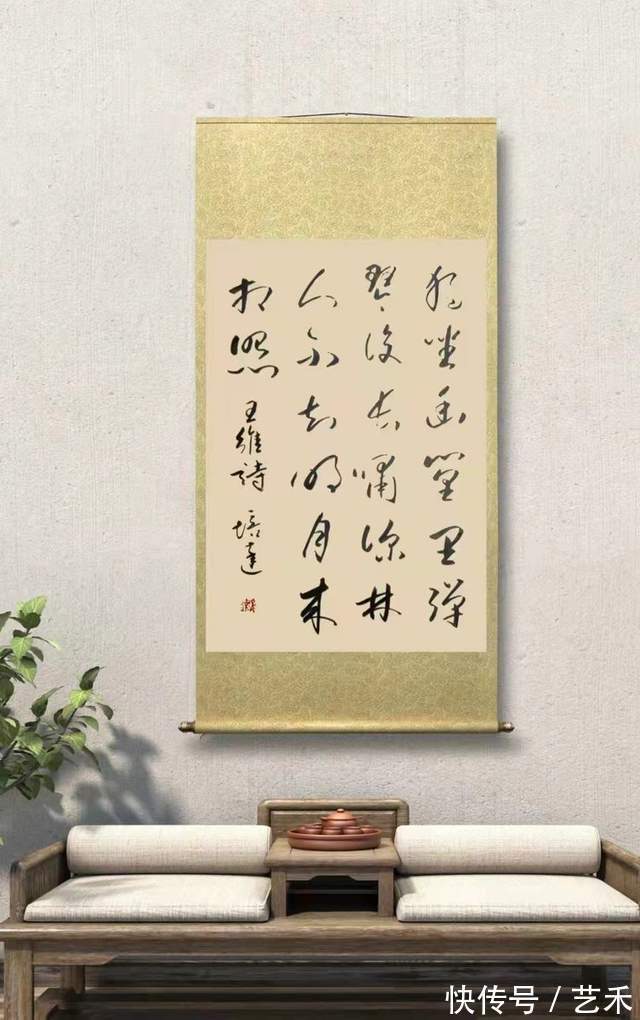 独坐幽篁里弹
琴復长嘯深林
人不知明月来
相照 王維詩 培達
快传号 / 艺禾